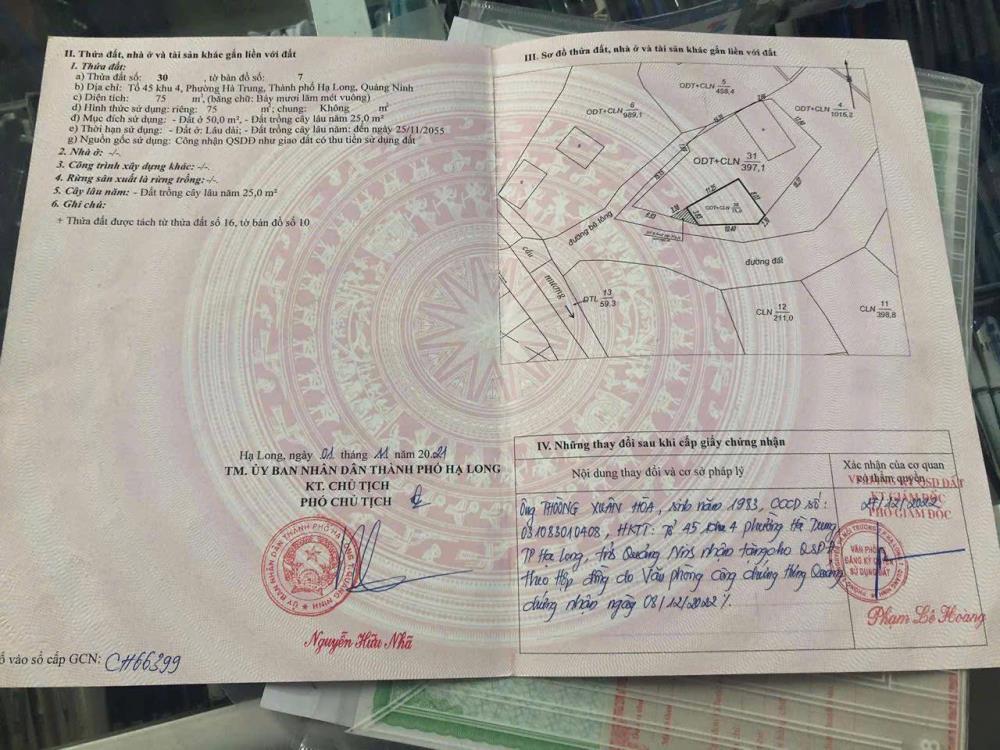 II. Thửa đất, nhà ở và tài sản khác gắn liền với đất
1. Thửa đất:
a) Thửa đất số: 30 , tờ bản đồ số: 7
b) Địa chỉ: Tổ 45 khu 4, Phường Hà Trung, Thành phố Hạ Long, Quảng Ninh
c) Diện tích: 75 m², (bằng chữ: Bảy mươi lăm mét vuông)
d) Hình thức sử dụng: riêng: 75 m²; chung: Không m²
đ) Mục đích sử dụng: - Đất ở 50,0 m², - Đất trồng cây lâu năm 25,0 m²
e) Thời hạn sử dụng: - Đất ở: Lâu dài; - Đất trồng cây lâu năm: đến ngày 25/11/2055
g) Nguồn gốc sử dụng: Công nhận QSDĐ như giao đất có thu tiền sử dụng đất
2. Nhà ở: -/-.
3. Công trình xây dựng khác: -/-.
4. Rừng sản xuất là rừng trồng: -/-.
5. Cây lâu năm: - Đất trồng cây lâu năm 25,0 m²
6. Ghi chú:
+ Thửa đất được tách từ thửa đất số 16, tờ bản đồ số 10
Hạ Long, ngày 01 tháng 11 năm 2021
TM. ỦY BAN NHÂN DÂN THÀNH PHỐ HẠ LONG
KT. CHỦ TỊCH
PHÓ CHỦ TỊCH
Nguyễn Hữu Nhã
ố vào sổ cấp GCN: CH66399
III. Sơ đồ thửa đất, nhà ở và tài sản khác gắn liền với đất
ODT+CLN 5 458,4
ODT+CLN 6 989,1
ODT+CLN 4 1016,2
ODT+CLN 31 397,1
đường bê tông
đường đất
cầu
mương
DTL 13 59,3
CLN 12 211,0
CLN 11 398,8
IV. Những thay đổi sau khi cấp giấy chứng nhận
Nội dung thay đổi và cơ sở pháp lý
Xác nhận của cơ quan
có thẩm quyền
KT GIÁM ĐỐC
PHÓ GIÁM ĐỐC
27/12/2022
Ông THOÒNG XUÂN HÒA, sinh năm 1983, CCCD số:
031083010408, HKTT: Tổ 45 khu 4 phường Hà Trung
TP Hạ Long, tỉnh Quảng Ninh nhận tặng cho QSDĐ
theo Hợp đồng do Văn phòng công chứng Hồng Quảng
chứng nhận ngày 08/12/2022 /.
VĂN PHÒNG
ĐĂNG KÝ QUYỀN
SỬ DỤNG ĐẤT
Phạm Lê Hoang